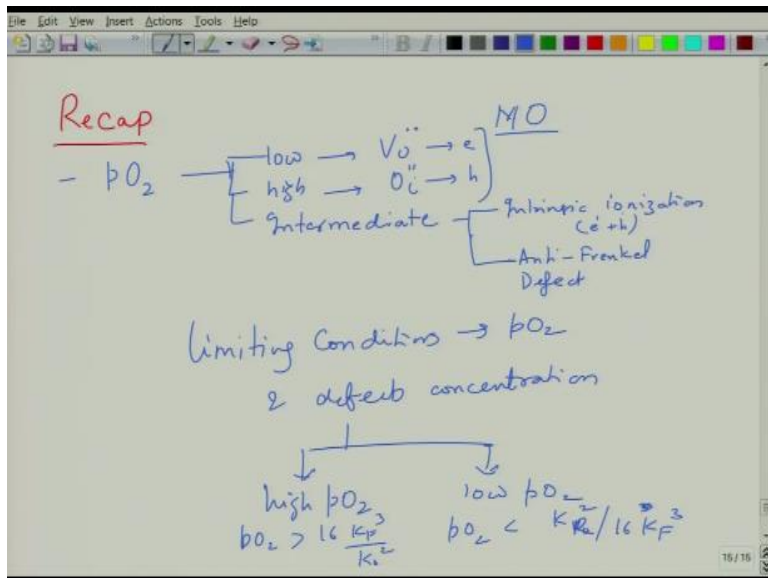 File Edit View Insert Actions Tools Help
Recap
MO
- pO₂ low → Vö → e
high → Oi'' → h
Intermediate Intrinsic ionization
(e' + h)
Anti-Frenkel
Defect
Limiting Conditions → pO₂
& defect concentration
high pO₂ low pO₂
pO₂ > 16 K_F³ / K_o² pO₂ < K_R² / 16 K_F³
15/15